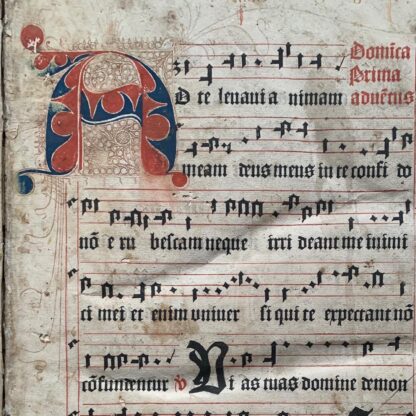 Domi̅ca
Prima
adue̅tus
AD te leuaui a nimam
meam deus meus in te confi do
no̅ e ru bescam neque irri deant me inimi
ci mei et enim vniuer si qui te expectant no̅
co̅fundentur v Vi as tuas domine demon